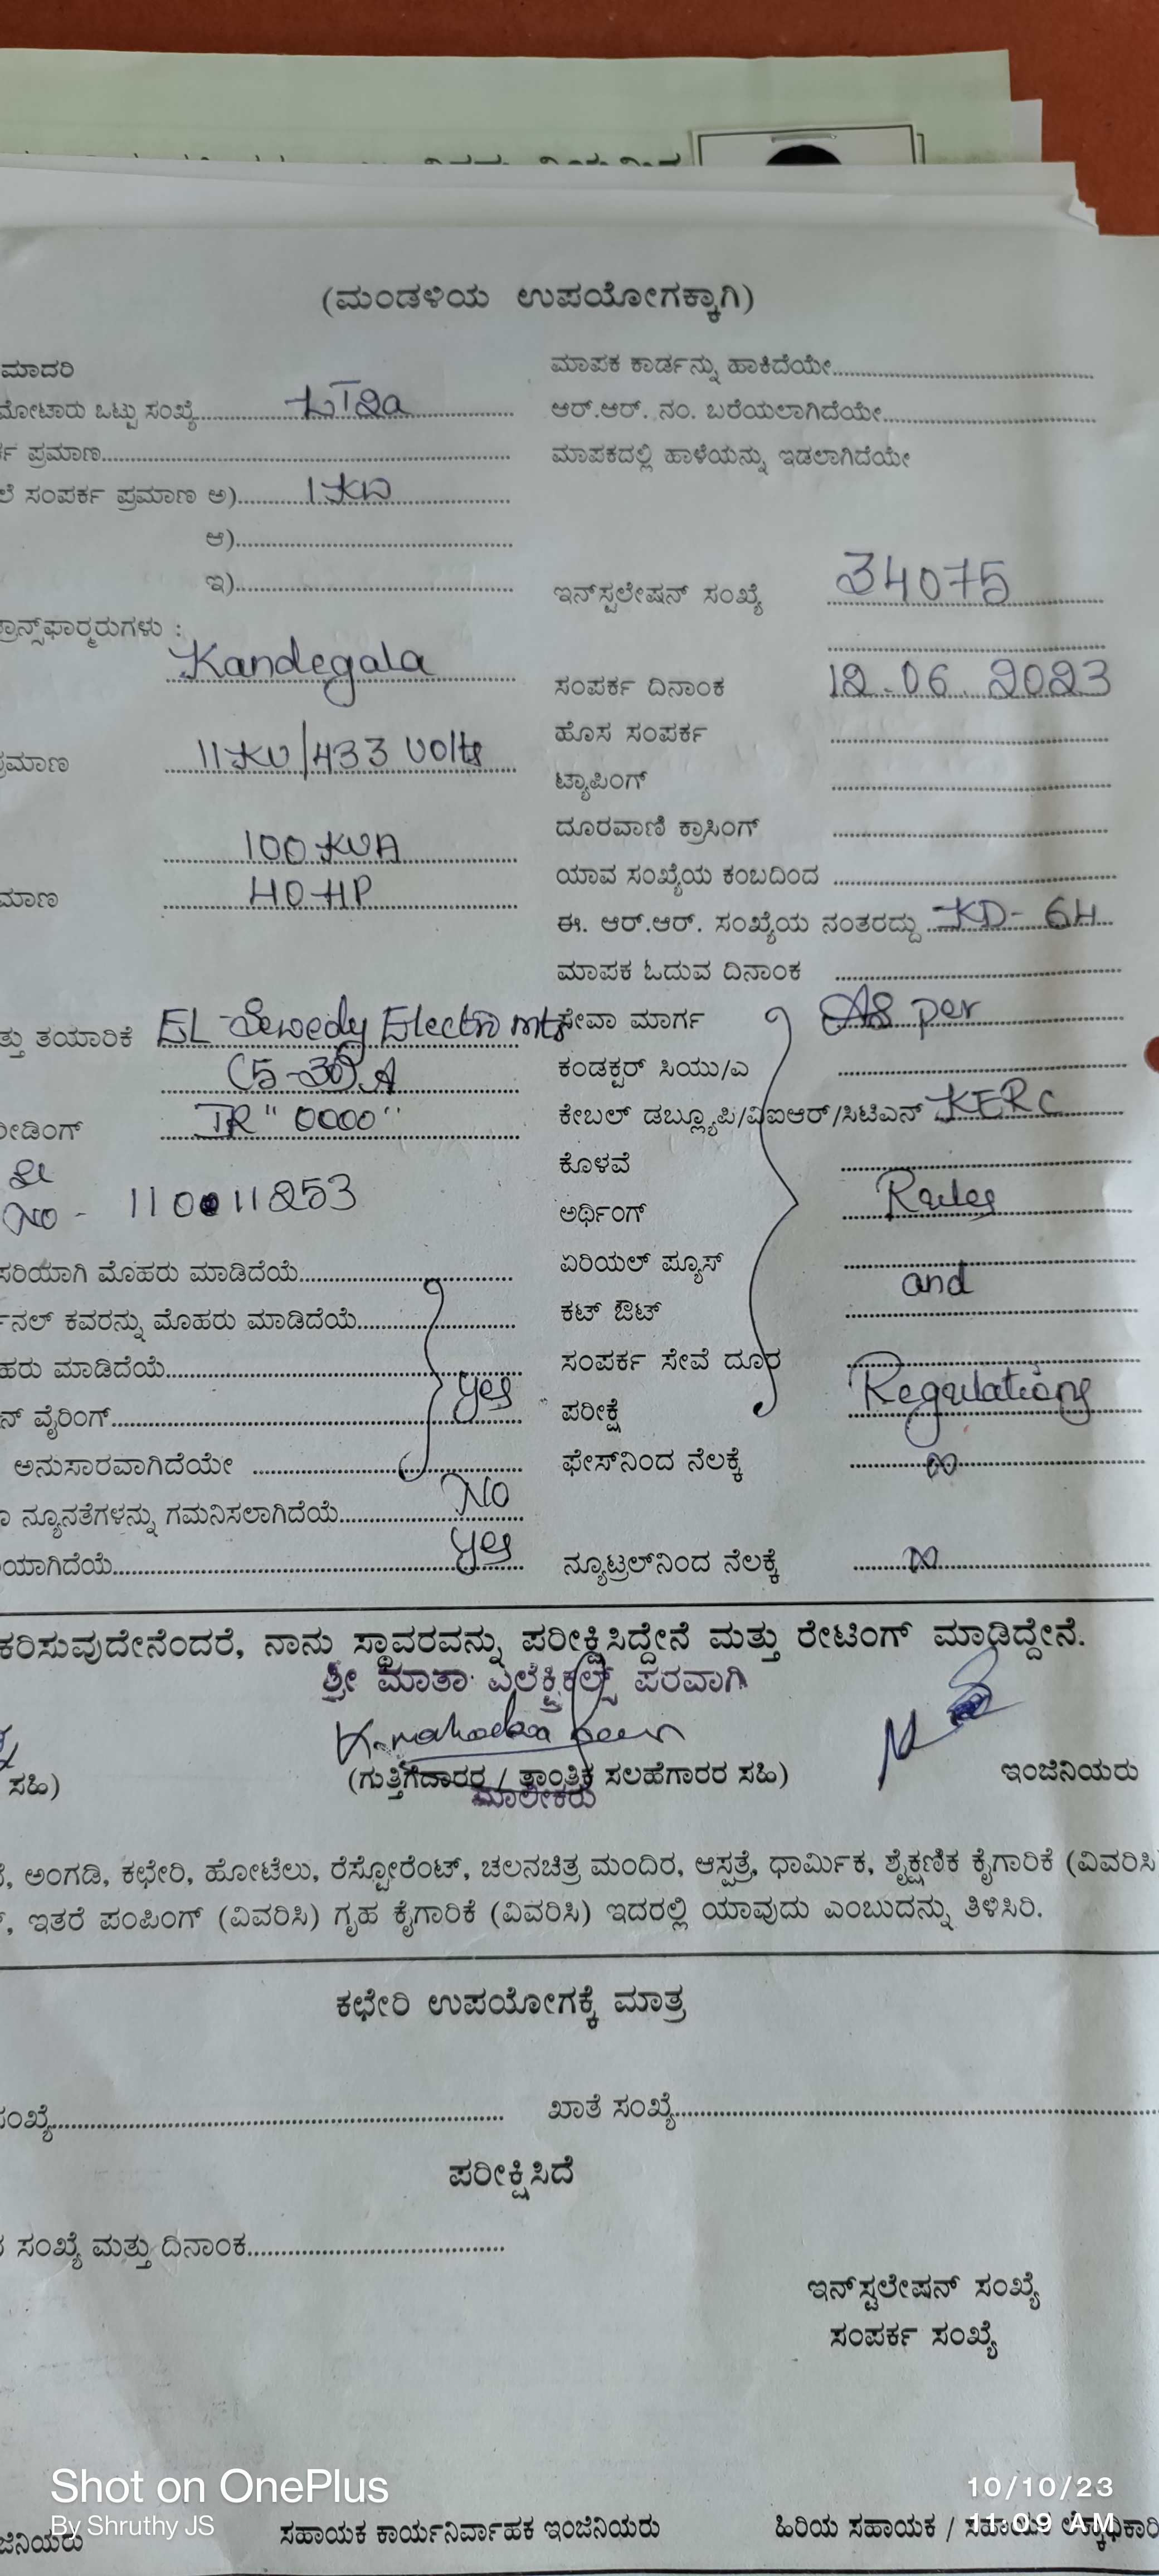 (ಮಂಡಳಿಯ ಉಪಯೋಗಕ್ಕಾಗಿ)
ಮಾದರಿ
ಮೋಟಾರು ಒಟ್ಟು ಸಂಖ್ಯೆ LT2a
ರ್ಕ ಪ್ರಮಾಣ
ಲೆ ಸಂಪರ್ಕ ಪ್ರಮಾಣ ಅ) 1KW
ಆ)
ಇ)
ಟ್ರಾನ್ಸ್‌ಫಾರ್ಮರುಗಳು :
Kandegala
ಪ್ರಮಾಣ 11KV/433 Volts
100 KVA
ಮಾಣ 40 HP
ತ್ತು ತಯಾರಿಕೆ EL Sewedy Electro mtr
(5-30)A
ರೀಡಿಂಗ್ IR "0000"
Sl
No - 110011253
ಸರಿಯಾಗಿ ಮೊಹರು ಮಾಡಿದೆಯೆ
ರ್ನಲ್ ಕವರನ್ನು ಮೊಹರು ಮಾಡಿದೆಯೆ
ಹರು ಮಾಡಿದೆಯೆ
ನ್ ವೈರಿಂಗ್ Yes
ಅನುಸಾರವಾಗಿದೆಯೇ
ನ್ಯೂನತೆಗಳನ್ನು ಗಮನಿಸಲಾಗಿದೆಯೆ No
ಯಾಗಿದೆಯೆ Yes
ಮಾಪಕ ಕಾರ್ಡನ್ನು ಹಾಕಿದೆಯೇ
ಆರ್.ಆರ್. ನಂ. ಬರೆಯಲಾಗಿದೆಯೇ
ಮಾಪಕದಲ್ಲಿ ಹಾಳೆಯನ್ನು ಇಡಲಾಗಿದೆಯೇ
ಇನ್‌ಸ್ಟಲೇಷನ್ ಸಂಖ್ಯೆ 34075
ಸಂಪರ್ಕ ದಿನಾಂಕ 12.06.2023
ಹೊಸ ಸಂಪರ್ಕ
ಟ್ಯಾಪಿಂಗ್
ದೂರವಾಣಿ ಕ್ರಾಸಿಂಗ್
ಯಾವ ಸಂಖ್ಯೆಯ ಕಂಬದಿಂದ
ಈ. ಆರ್.ಆರ್. ಸಂಖ್ಯೆಯ ನಂತರದ್ದು KD-64
ಮಾಪಕ ಓದುವ ದಿನಾಂಕ
ಸೇವಾ ಮಾರ್ಗ As per
ಕಂಡಕ್ಟರ್ ಸಿಯು/ಎ
ಕೇಬಲ್ ಡಬ್ಲ್ಯೂಪಿ/ವಿಐಆರ್/ಸಿಟಿಎನ್ KERC
ಕೊಳವೆ
ಅರ್ಥಿಂಗ್ Rules
ಏರಿಯಲ್ ಫ್ಯೂಸ್
ಕಟ್ ಔಟ್ and
ಸಂಪರ್ಕ ಸೇವೆ ದೂರ
ಪರೀಕ್ಷೆ Regulations
ಫೇಸ್‌ನಿಂದ ನೆಲಕ್ಕೆ ∞
ನ್ಯೂಟ್ರಲ್‌ನಿಂದ ನೆಲಕ್ಕೆ ∞
ಕರಿಸುವುದೇನೆಂದರೆ, ನಾನು ಸ್ಥಾವರವನ್ನು ಪರೀಕ್ಷಿಸಿದ್ದೇನೆ ಮತ್ತು ರೇಟಿಂಗ್ ಮಾಡಿದ್ದೇನೆ.
ಶ್ರೀ ಮಾತಾ ಎಲೆಕ್ಟ್ರಿಕಲ್ಸ್ ಪರವಾಗಿ
ಸಹಿ) (ಗುತ್ತಿಗೆದಾರರ / ತಾಂತ್ರಿಕ ಸಲಹೆಗಾರರ ಸಹಿ) ಇಂಜಿನಿಯರು
ಮಾಲೀಕರು
, ಅಂಗಡಿ, ಕಛೇರಿ, ಹೋಟೆಲು, ರೆಸ್ಟೋರೆಂಟ್, ಚಲನಚಿತ್ರ ಮಂದಿರ, ಆಸ್ಪತ್ರೆ, ಧಾರ್ಮಿಕ, ಶೈಕ್ಷಣಿಕ ಕೈಗಾರಿಕೆ (ವಿವರಿಸಿ
, ಇತರೆ ಪಂಪಿಂಗ್ (ವಿವರಿಸಿ) ಗೃಹ ಕೈಗಾರಿಕೆ (ವಿವರಿಸಿ) ಇದರಲ್ಲಿ ಯಾವುದು ಎಂಬುದನ್ನು ತಿಳಿಸಿರಿ.
ಕಛೇರಿ ಉಪಯೋಗಕ್ಕೆ ಮಾತ್ರ
ಸಂಖ್ಯೆ ಖಾತೆ ಸಂಖ್ಯೆ
ಪರೀಕ್ಷಿಸಿದೆ
ಸಂಖ್ಯೆ ಮತ್ತು ದಿನಾಂಕ
ಇನ್‌ಸ್ಟಲೇಷನ್ ಸಂಖ್ಯೆ
ಸಂಪರ್ಕ ಸಂಖ್ಯೆ
Shot on OnePlus
By Shruthy JS
10/10/23
11:09 AM
ಜಿನಿಯರು ಸಹಾಯಕ ಕಾರ್ಯನಿರ್ವಾಹಕ ಇಂಜಿನಿಯರು ಹಿರಿಯ ಸಹಾಯಕ / ಸಹಾಯಕ ಲೆಕ್ಕಾಧಿಕಾರಿ